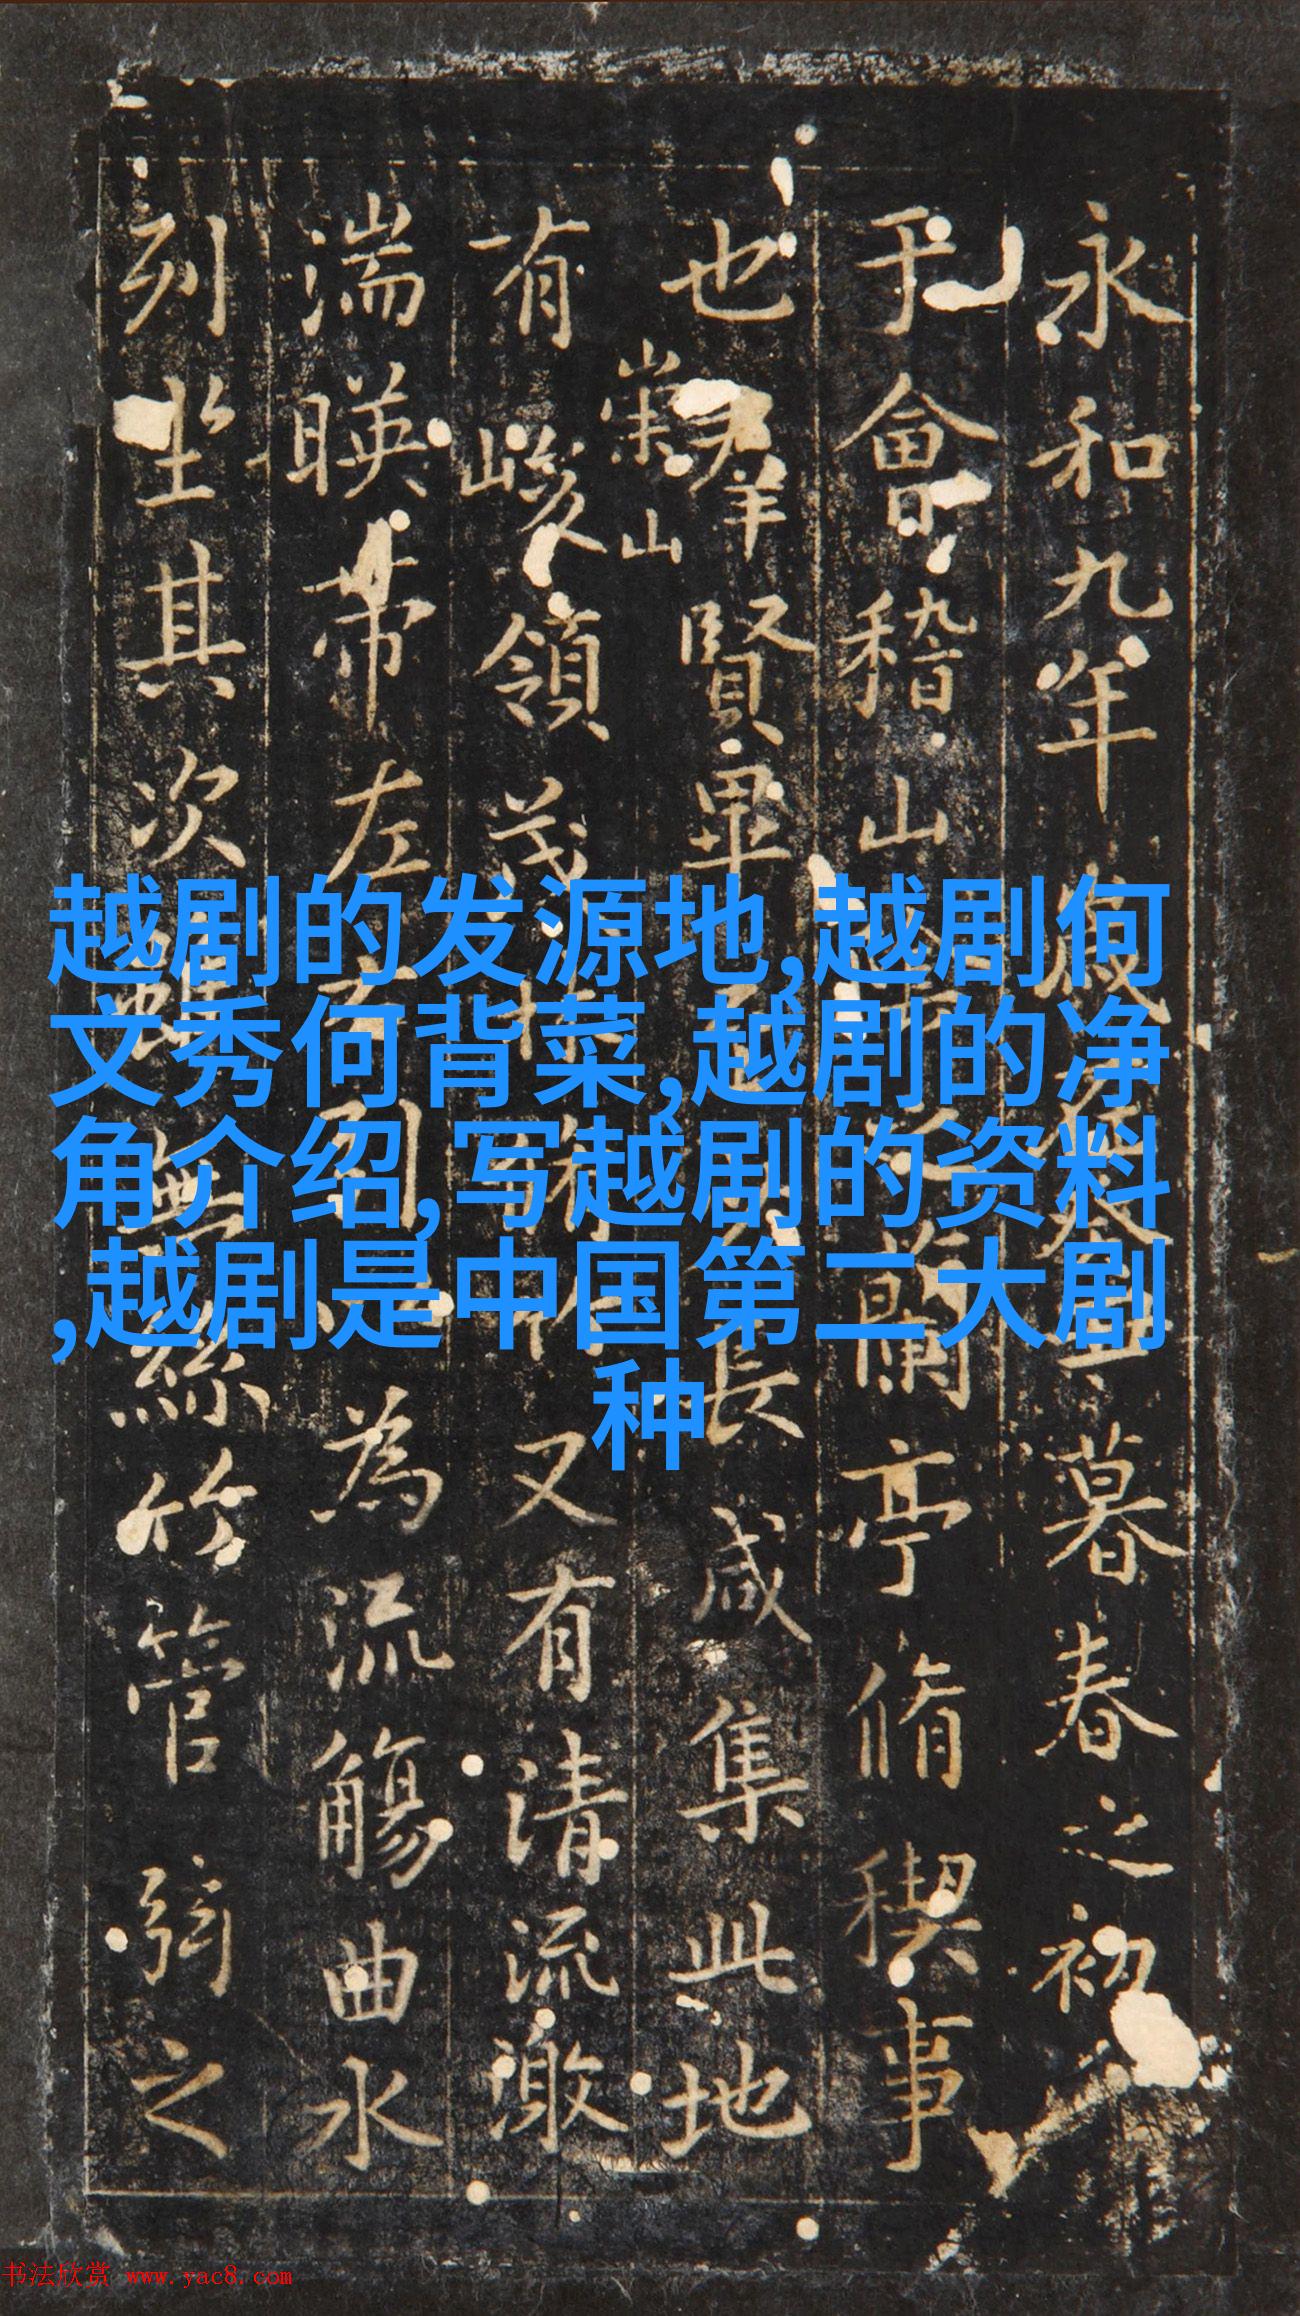 永和九年歲在癸丑暮春之初
于會稽山陰之蘭亭脩稧事
也羣賢畢至少長咸集此地
崇山
有峻領茂林脩竹又有清流激
湍暎帶左右引以為流觴曲水
列坐其次雖無絲竹管弦之
越剧的发源地,越剧何
文秀何背菜,越剧的净
角介绍,写越剧的资料
,越剧是中国第二大剧
种
书法欣赏 www.yac8.com